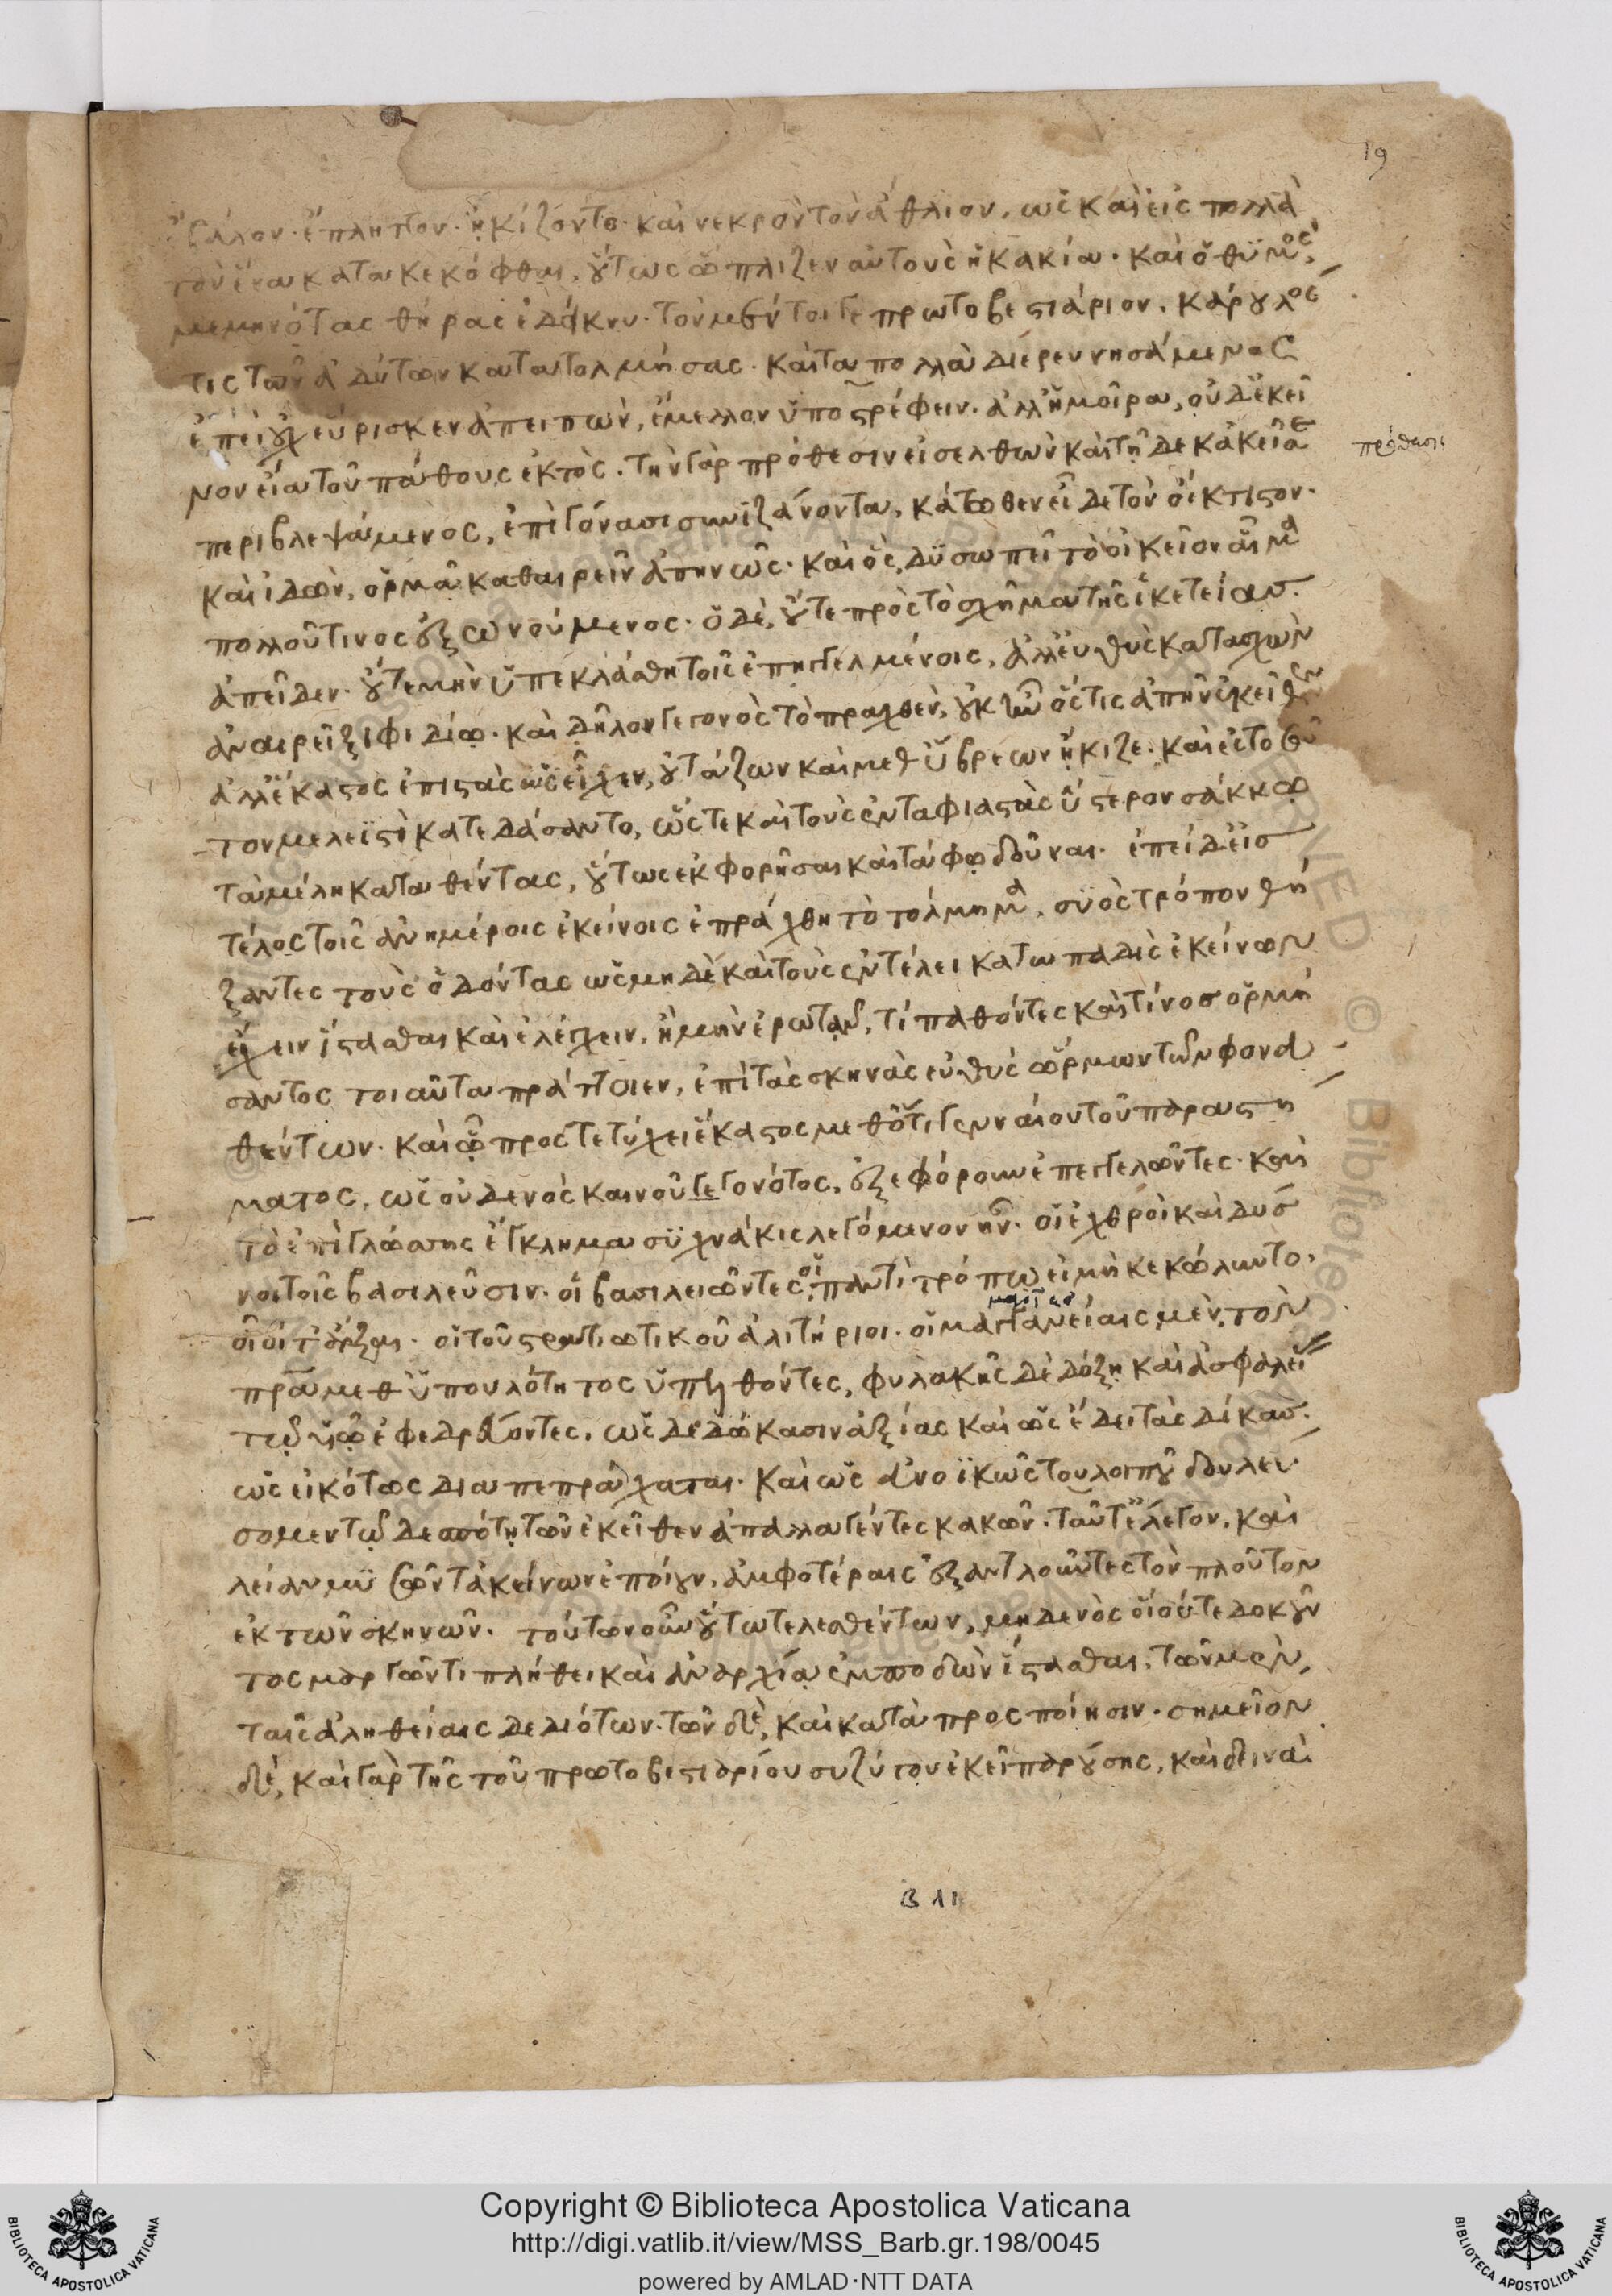 19
ἔβαλον· ἔπληττον· ἠκίζοντο· καὶ νεκρὸν τὸν ἄθλιον, ὡς καὶ εἰς πολλὰ
τὸν ἕνα κατακεκόφθαι, οὕτως ὥπλιζεν αὐτοὺς ἡ κακία· καὶ ὁ θυμὸς,
μεμηνότας θῆρας ἐδείκνυ· τὸν μέντοι γε πρωτοβεστιάριον, Κάρουλος
τις τῶν ἀδύτων κατατολμήσας· καὶ τὰ πολλὰ διερευνησάμενος
ἐπεὶ οὐχ εὕρισκεν ἀπειπὼν, ἔμελλον ὑποστρέφειν· ἀλλ' ἡ μοῖρα, οὐδ' ἐκεῖ
νον εἴα τοῦ πάθους ἐκτὸς· τὴν γὰρ πρόθεσιν εἰσελθὼν καὶ τῇδε κἀκεῖσε
πρόθεσις
περιβλεψάμενος, ἐπὶ γόνασι συνιζάνοντα, κάτωθεν εἶδε τὸν οἴκτιστον·
καὶ ἰδὼν, ὁρμᾶ καθαιρεῖν ἀπηνῶς· καὶ ὃς, δυσωπεῖ τὸ οἰκεῖον αἷμα
πολλοῦ τινος ἐξωνούμενος· ὁ δὲ, οὔτε πρὸς τὸ σχῆμα τῆς ἱκετείας
ἀπεῖδεν· οὔτε μὴν ὑπεκλάσθη τοῖς ἐπηγγελμένοις, ἀλλ' εὐθὺς κατασχὼν
ἀναιρεῖ ξιφιδίῳ· καὶ δῆλον γεγονὸς τὸ πραχθὲν, οὐκ ἦν ὅστις ἀπῆν ἐκεῖθεν
ἀλλ' ἕκαστος ἐπιστὰς ὡς εἶχεν, οὐτάζων καὶ μεθ' ὕβρεων ἤκιζε· καὶ ἐς τοσοῦ
τον μελεϊστὶ κατεδάσαντο, ὥστε καὶ τοὺς ἐνταφιαστὰς ὕστερον σάκκῳ
τὰ μέλη καταθέντας, οὕτως ἐκφορῆσαι καὶ τάφῳ δοῦναι· ἐπεὶ δ' εἰς
τέλος τοῖς ἀνημέροις ἐκείνοις ἐπράχθη τὸ τόλμημα, συὸς τρόπον θή
ξαντες τοὺς ὀδόντας ὡς μηδὲ καὶ τοὺς ἐν τέλει κατωπαδὶς ἐκείνων
ἔχειν ἵστασθαι καὶ ἐλέγχειν, ἢ μὴν ἐρωτᾶν, τί παθόντες καὶ τίνος ὁρμή
σαντος τοιαῦτα πράττοιεν, ἐπὶ τὰς σκηνὰς εὐθὺς ὥρμων τῶν φονευ
θέντων· καὶ ᾧ προστετύχει ἕκαστος μεθ' ὅτι γενναίου τοῦ παραστή
ματος, ὡς οὐδενὸς καινοῦ γεγονότος, ἐξεφόρουν ἐπεγγελῶντες· καὶ
τὸ ἐπὶ γλώσσης ἔγκλημα συχνάκις λεγόμενον ἦν· οἱ ἐχθροὶ καὶ δύσ
νοι τοῖς βασιλεῦσιν· οἱ βασιλειῶντες οἱ παντὶ τρόπῳ εἰ μὴ κεκώλυντο,
οἷοί τ' ἄρξαι· οἱ τοῦ στρατιωτικοῦ ἀλιτήριοι· οἱ μαγγανείαις μὲν, τὸν
πρῶτα μεθ' ὑπουλότητος ὑπελθόντες, φυλακῆς δὲ δόξῃ καὶ ἀσφαλείας
τῷ υἱῷ ἐφεδρεύοντες, ὡς δεδώκασιν ἀξίας καὶ ὡς ἔδει τὰς δίκας·
ὡς εἰκότως διαπεπράχαται· καὶ ὡς εὐνοϊκῶς τοῦ λοιποῦ δουλεύ
σομεν τῷ δεσπότῃ τῶν ἐκεῖθεν ἀπαλλαγέντες κακῶν· ταῦτ' ἔλεγον, καὶ
λείαν μυσῶν τἀκείνων ἐποίουν, ἀμφοτέραις ἐξαντλοῦντες τὸν πλοῦτον
ἐκ τῶν σκηνῶν· τούτων οὖν οὕτω τελεσθέντων, μηδενὸς οἵου τε δοκοῦν
τος μαργῶντι πλήθει καὶ ἀναρχίᾳ ἐμποδὼν ἵστασθαι, τῶν μὲν,
ταῖς ἀληθείαις δεδιότων· τῶν δὲ, καὶ κατὰ προσποίησιν· σημεῖον
δὲ, καὶ γὰρ τῆς τοῦ πρωτοβεστιαρίου συζύγου ἐκεῖ παρούσης, καὶ δεινὰ
B 11
Copyright © Biblioteca Apostolica Vaticana
http://digi.vatlib.it/view/MSS_Barb.gr.198/0045
powered by AMLAD·NTT DATA
BIBLIOTECA APOSTOLICA VATICANA
BIBLIOTECA APOSTOLICA VATICANA